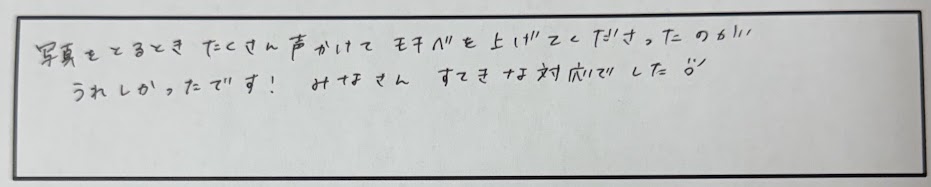 写真をとるとき たくさん声かけて モチベを上げてくださったのが
うれしかったです! みなさん すてきな対応でした